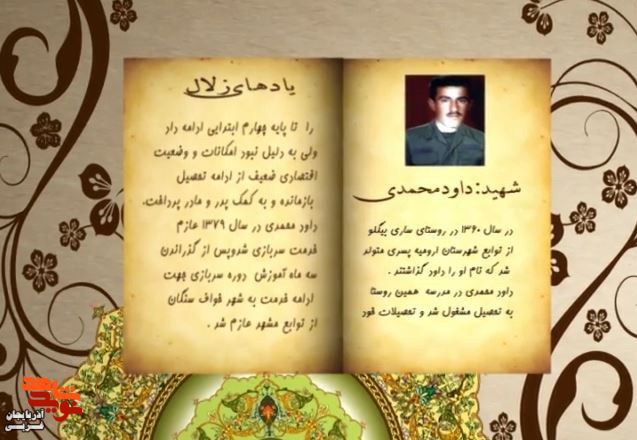 شهید: داود محمدی
در سال ۱۳۶۰ در روستای ساری بیگلو
از توابع شهرستان ارومیه پسری متولد
شد که نام او را داود گذاشتند .
داود محمدی در مدرسه همین روستا
به تحصیل مشغول شد و تحصیلات خود
یادهای زلال
را تا پایه چهارم ابتدایی ادامه داد
ولی به دلیل نبود امکانات و وضعیت
اقتصادی ضعیف از ادامه تحصیل
بازمانده و به کمک پدر و مادر پرداخت.
داود محمدی در سال ۱۳۷۹ عازم
خدمت سربازی شدوپس از گذراندن
سه ماه آموزش دوره سربازی جهت
ادامه خدمت به شهر خواف سنگان
از توابع مشهد عازم شد .
نوید شاهد
آذربایجان
غربی